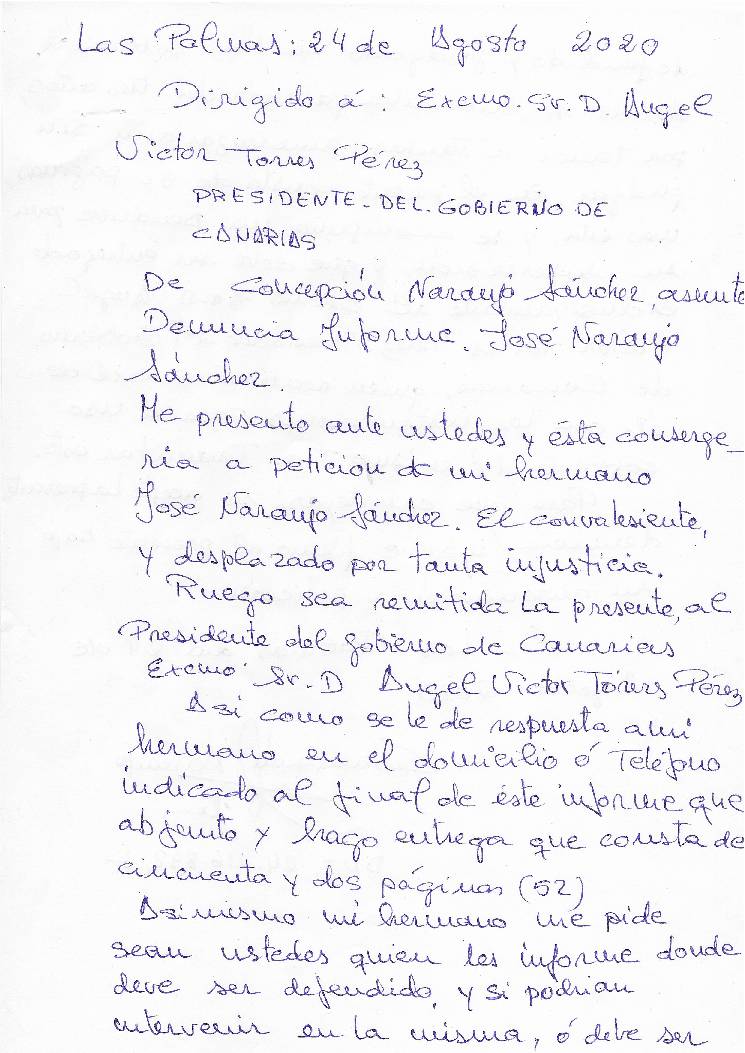 Las Palmas; 24 de Agosto 2020
Dirigido á: Excmo. Sr. D. Angel
Victor Torres Pérez
PRESIDENTE. DEL. GOBIERNO DE
CANARIAS
De Concepción Naranjo Sánchez, asunto
Denuncia Informe. José Naranjo
Sánchez.
Me presento ante ustedes y ésta conserge_
ria a petición de mi hermano
José Naranjo Sánchez. El convalesiente,
y desplazado por tanta injusticia.
Ruego sea remitida La presente, al
Presidente del gobierno de Canarias
Excmo. Sr. D Angel Victor Torres Pérez
Asi como se le de respuesta a mi
hermano en el domicilio ó Teléfono
indicado al final de éste informe que
abjunto y hago entrega que consta de
cincuenta y dos páginas (52)
Asimismo mi hermano me pide
sean ustedes quien les informe donde
deve ser defendido, y si podrian
intervenir en la misma, ó debe ser